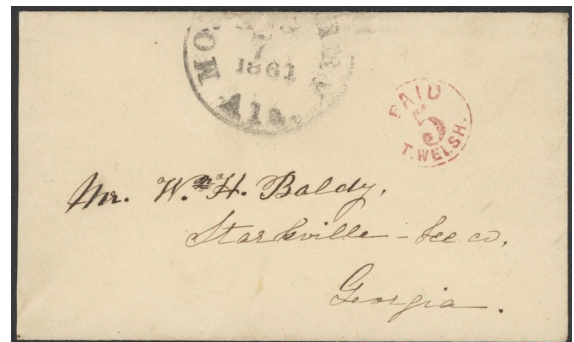 MO
7
1861
Ala.
PAID
5
T. WELSH.
Mr. Wm H. Baldy,
Starkville - Lee co,
Georgia.